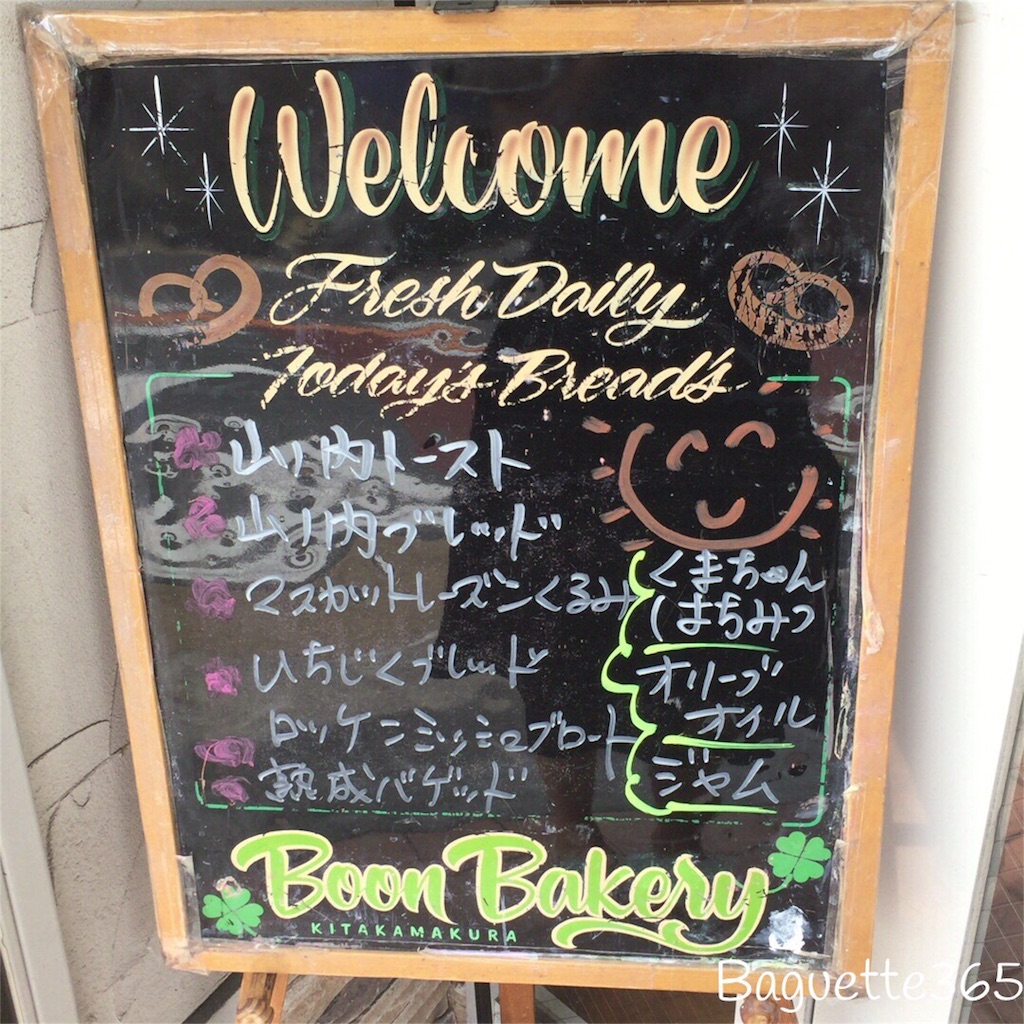 Welcome
Fresh Daily
Today's Bread's
山ノ内トースト
山ノ内ブレッド
マスカットレーズンくるみ
いちじくブレッド
ロッゲンミッシュブロート
熟成バゲッド
くまちゃん
はちみつ
オリーブ
オイル
ジャム
Boon Bakery
KITAKAMAKURA
Baguette365